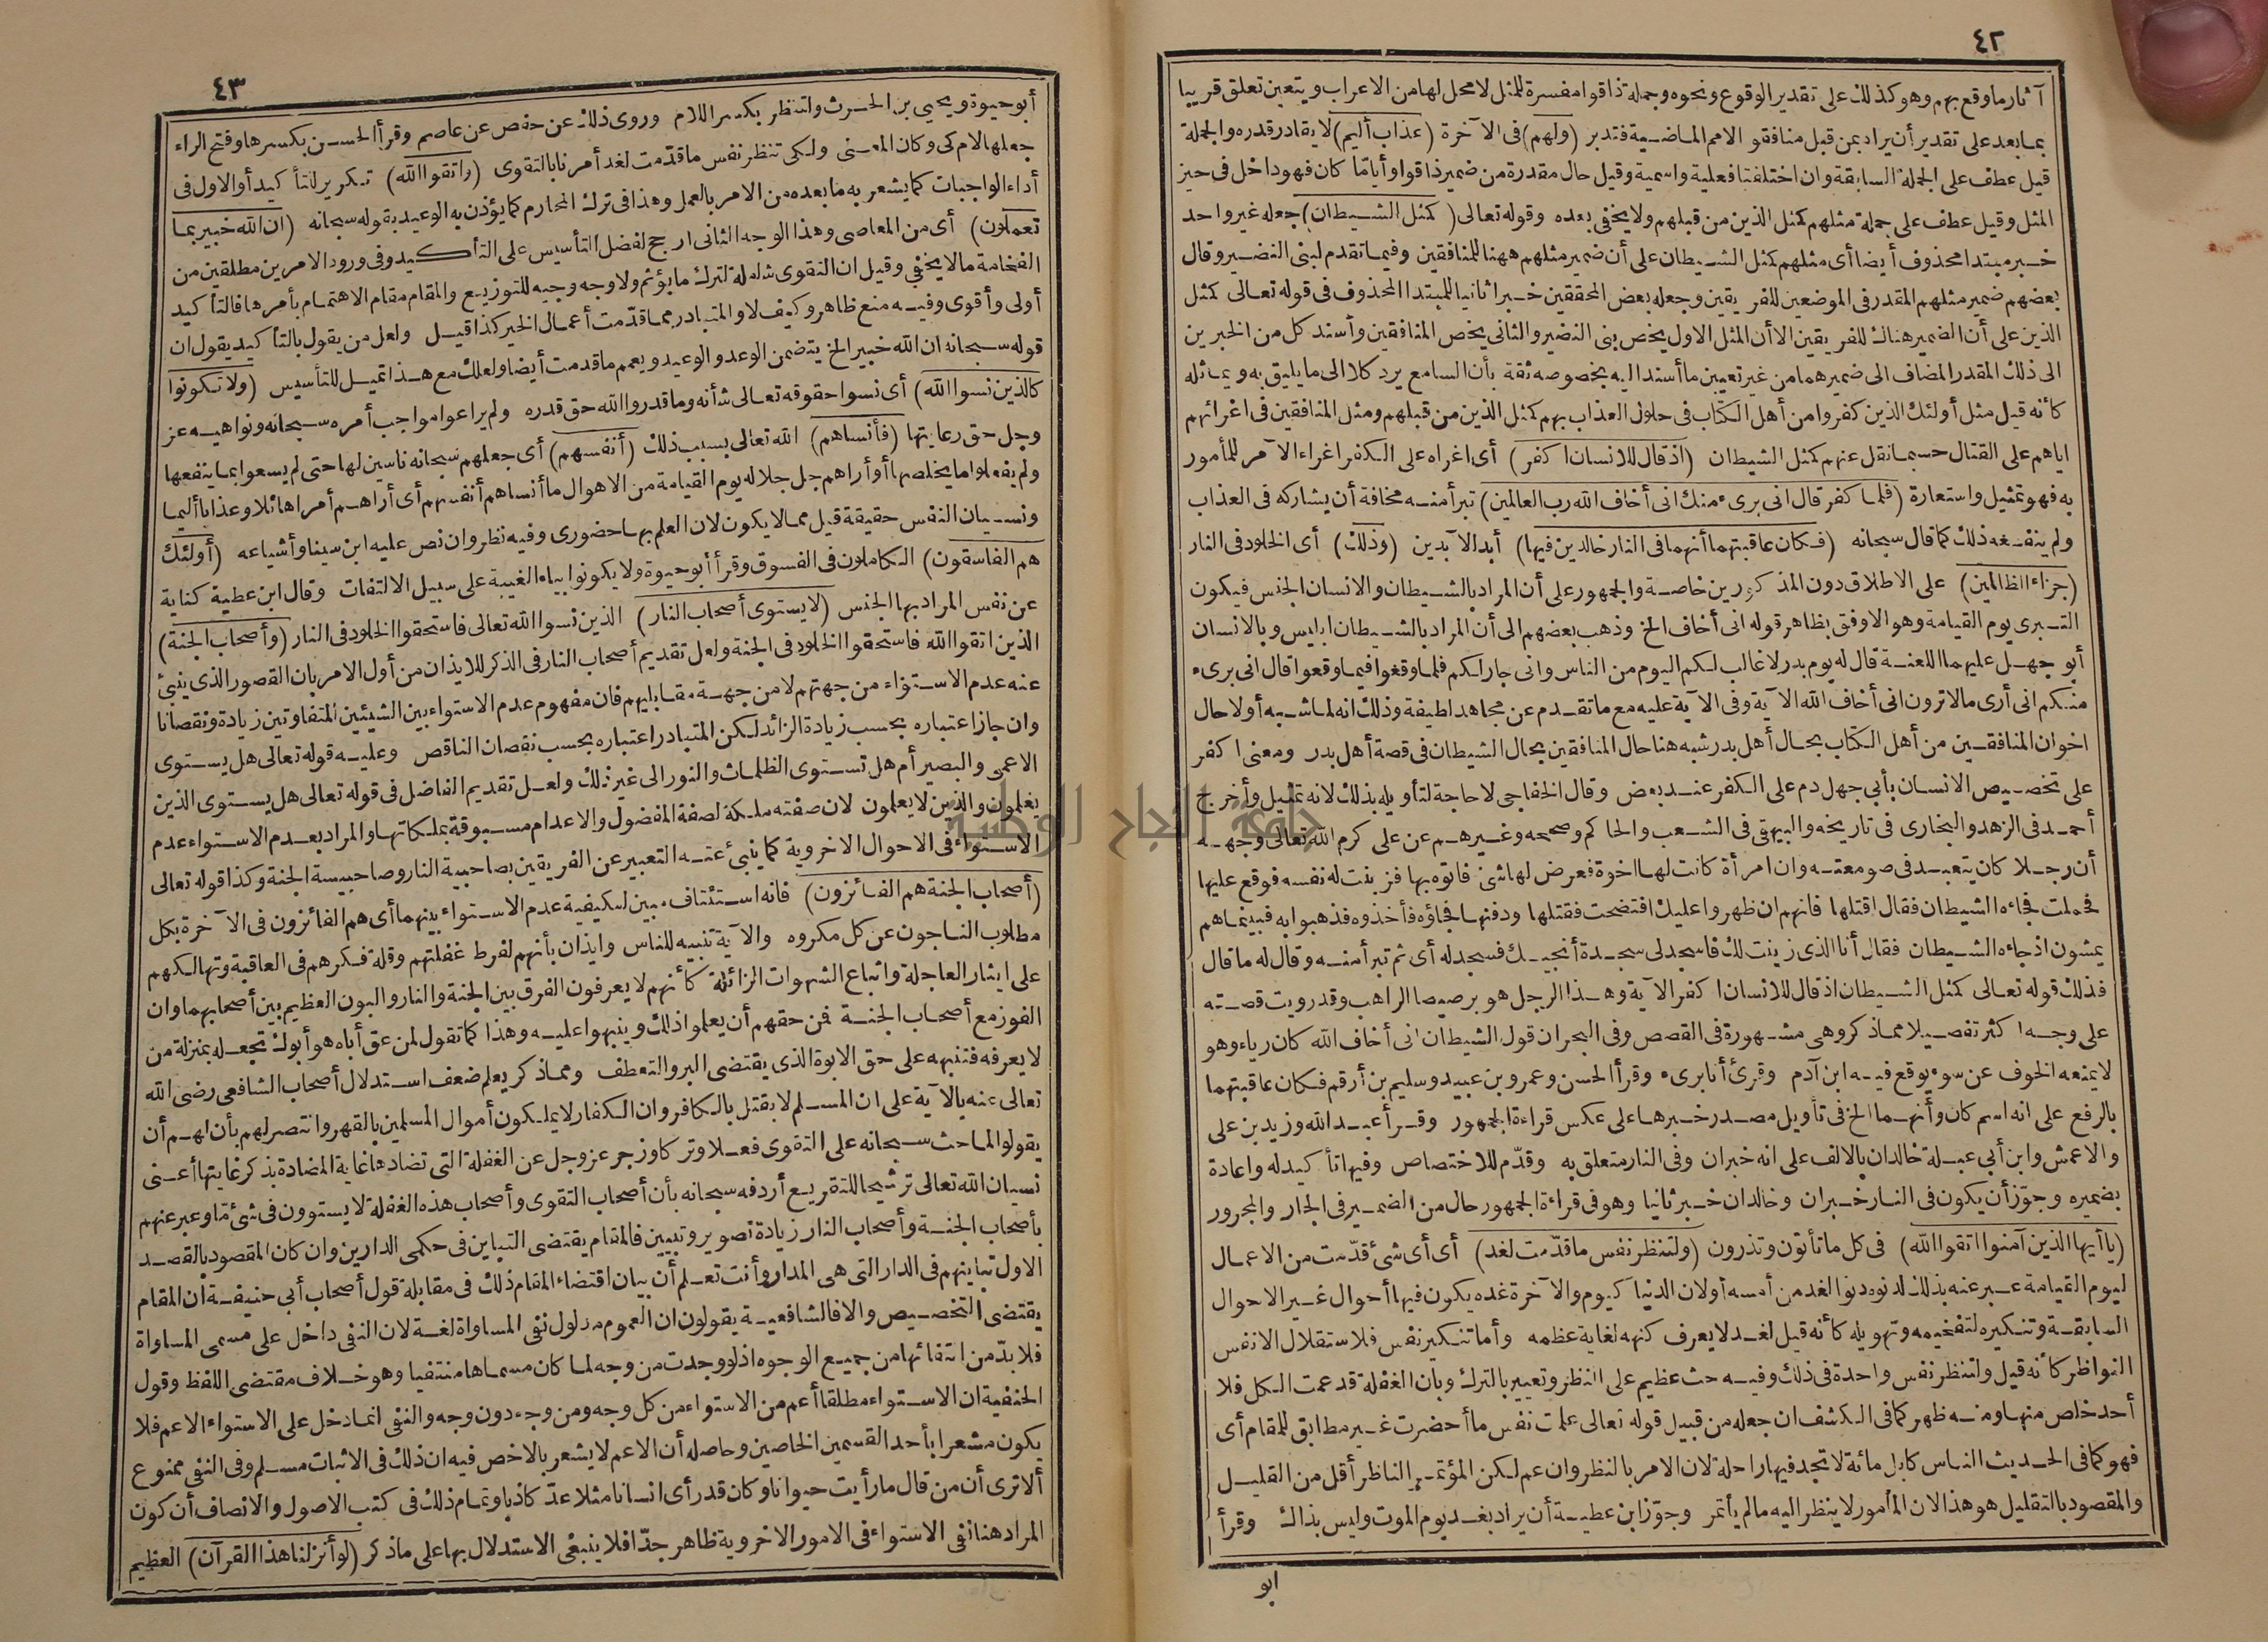 ٤٢
آثار ما وقع بهم وهو كذلك على تقدير الوقوع ونحوه وجملة ذاقوا مفسرة للمثل لا محل لها من الاعراب ويتعين تعلق قريبا
بما بعد على تقدير أن يراد بمن قبل منافقو الامم الماضية فتدبر (ولهم) فى الآخرة (عذاب أليم) لا يقادر قدره والجملة
قيل عطف على الجملة السابقة وان اختلفتا فعلية واسمية وقيل حال مقدرة من ضمير ذاقوا وأياما كان فهو داخل فى حيز
المثل وقيل عطف على جملة مثلهم كمثل الذين من قبلهم ولا يخفى بعده وقوله تعالى (كمثل الشيطان) جعله غير واحد
خبر مبتدا محذوف أيضا أى مثلهم كمثل الشيطان على أن ضمير مثلهم ههنا للمنافقين وفيما تقدم لبنى النضير وقال
بعضهم ضمير مثلهم المقدر فى الموضعين للفريقين وجعله بعض المحققين خبرا ثانيا للمبتدا المحذوف فى قوله تعالى كمثل
الذين على أن الضمير هناك للفريقين الا أن المثل الاول يخص بنى النضير والثانى يخص المنافقين وأسند كل من الخبرين
الى ذلك المقدر المضاف الى ضميرهما من غير تعيين ما أسند اليه بخصوصه ثقة بأن السامع يرد كلا الى ما يليق به ويماثله
كأنه قيل مثل أولئك الذين كفروا من أهل الكتاب فى حلول العذاب بهم كمثل الذين من قبلهم ومثل المنافقين فى اغرائهم
اياهم على القتال حسبما نقل عنهم كمثل الشيطان (اذ قال للانسان اكفر) أى اغراه على الكفر اغراء الآمر للمأمور
به فهو تمثيل واستعارة (فلما كفر قال انى برىء منك انى أخاف الله رب العالمين) تبرأ منه مخافة أن يشاركه فى العذاب
ولم ينفعه ذلك كما قال سبحانه (فكان عاقبتهما أنهما فى النار خالدين فيها) أبد الآبدين (وذلك) أى الخلود فى النار
(جزاء الظالمين) على الاطلاق دون المذكورين خاصة والجمهور على أن المراد بالشيطان والانسان الجنس فيكون
التبرى يوم القيامة وهو الاوفق بظاهر قوله انى أخاف الخ وذهب بعضهم الى أن المراد بالشيطان ابليس وبالانسان
أبو جهل عليهما اللعنة قال له يوم بدر لا غالب لكم اليوم من الناس وانى جار لكم فلما وقعوا فيما وقعوا قال انى برىء
منكم انى أرى ما لا ترون انى أخاف الله الآية وفى الآية عليه مع ما تقدم عن مجاهد لطيفة وذلك انه لما شبه أولا حال
اخوان المنافقين من أهل الكتاب بحال أهل بدر شبه هنا حال المنافقين بحال الشيطان فى قصة أهل بدر ومعنى اكفر
على تخصيص الانسان بأبى جهل دم على الكفر عند بعض وقال الخفاجى لا حاجة لتأويله بذلك لانه تمثيل وأخرج
أحمد فى الزهد والبخارى فى تاريخه والبيهقى فى الشعب والحاكم وصححه وغيرهم عن على كرم الله تعالى وجهه
أن رجلا كان يتعبد فى صومعته وان امرأة كانت لها اخوة فعرض لها شئ فاتوه بها فزينت له نفسه فوقع عليها
فحملت فجاءه الشيطان فقال اقتلها فانهم ان ظهروا عليك افتضحت فقتلها ودفنها فجاؤه فأخذوه فذهبوا به فبينما هم
يمشون اذ جاءه الشيطان فقال أنا الذى زينت لك فاسجد لى سجدة أنجيك فسجد له أى ثم تبرأ منه وقال له ما قال
فذلك قوله تعالى كمثل الشيطان اذ قال للانسان اكفر الآية وهذا الرجل هو برصيصا الراهب وقد رويت قصته
على وجه اكثر تفصيلا مما ذكر وهى مشهورة فى القصص وفى البحر ان قول الشيطان انى أخاف الله كان رياء وهو
لا يمنعه الخوف عن سوء يوقع فيه ابن آدم وقرئ أنا برىء وقرأ الحسن وعمرو بن عبيد وسليم بن أرقم فكان عاقبتهما
بالرفع على انه اسم كان وأنهما الخ فى تأويل مصدر خبرها على عكس قراءة الجمهور وقرأ عبد الله وزيد بن على
والاعمش وابن أبى عبلة خالدان بالالف على انه خبر ان وفى النار متعلق به وقدم للاختصاص وفيها تأكيد له واعادة
بضميره وجوز أن يكون فى النار خبر ان وخالدان خبر ثانيا وهو فى قراءة الجمهور حال من الضمير فى الجار والمجرور
(ياأيها الذين آمنوا اتقوا الله) فى كل ما تأتون وتذرون (ولتنظر نفس ما قدمت لغد) أى أى شئ قدمت من الاعمال
ليوم القيامة عبر عنه بذلك لدنوه دنو الغد من أمسه أو لان الدنيا كيوم والآخرة غده يكون فيها أحوال غير الاحوال
السابقة وتنكيره لتفخيمه وتهويله كأنه قيل لغد لا يعرف كنهه لغاية عظمه وأما تنكير نفس فلاستقلال الانفس
النواظر كأنه قيل ولتنظر نفس واحدة فى ذلك وفيه حث عظيم على النظر وتعيير بالترك وبان الغفلة قد عمت الكل فلا
أحد خلص منها ومنه ظهر كما فى الكشف ان جعله من قبيل قوله تعالى علمت نفس ما أحضرت غير مطابق للمقام أى
فهو كما فى الحديث الناس كابل مائة لا تجد فيها راحلة لان الامر بالنظر وان عم لكن المؤتمر الناظر أقل من القليل
والمقصود بالتقليل هو هذا لان المأمور لا ينظر اليه ما لم يأتمر وجوز ابن عطية أن يراد بغد يوم الموت وليس بذاك وقرأ
ابو
٤٣
أبو حيوة ويحيى بن الحرث ولتنظر بكسر اللام وروى ذلك عن حفص عن عاصم وقرأ الحسن بكسرها وفتح الراء
جعلها لام كى وكان المعنى ولكى تنظر نفس ما قدمت لغد أمرنا بالتقوى (واتقوا الله) تكرير للتأكيد أو الاول فى
أداء الواجبات كما يشعر به ما بعده من الامر بالعمل وهذا فى ترك المحارم كما يؤذن به الوعيد بقوله سبحانه (ان الله خبير بما
تعملون) أى من المعاصى وهذا الوجه الثانى ارجح لفضل التأسيس على التأكيد وفى ورود الامرين مطلقين من
الفخامة ما لا يخفى وقيل ان التقوى شاملة لترك ما يؤثم ولا وجه وجيه للتوزيع والمقام مقام الاهتمام بأمرها فالتأكيد
أولى وأقوى وفيه منع ظاهر وكيف لا والمتبادر مما قدمت أعمال الخير كذا قيل ولعل من يقول بالتأكيد يقول ان
قوله سبحانه ان الله خبير الخ يتضمن الوعد والوعيد ويعمم ما قدمت أيضا ولعلك مع هذا تميل للتأسيس (ولا تكونوا
كالذين نسوا الله) أى نسوا حقوقه تعالى شأنه وما قدروا الله حق قدره ولم يراعوا مواجب أمره سبحانه ونواهيه عز
وجل حق رعايتها (فأنساهم) الله تعالى بسبب ذلك (أنفسهم) أى جعلهم سبحانه ناسين لها حتى لم يسعوا بما ينفعها
ولم يفعلوا ما يخلصها أو أراهم جل جلاله يوم القيامة من الاهوال ما أنساهم أنفسهم أى أراهم أمرا هائلا وعذابا أليما
ونسيان النفس حقيقة قيل مما لا يكون لان العلم بها حضورى وفيه نظر وان نص عليه ابن سينا وأشياعه (أولئك
هم الفاسقون) الكاملون فى الفسوق وقرأ أبو حيوة ولا يكونوا بياء الغيبة على سبيل الالتفات وقال ابن عطية كناية
عن نفس المراد بها الجنس (لا يستوى أصحاب النار) الذين نسوا الله تعالى فاستحقوا الخلود فى النار (وأصحاب الجنة)
الذين اتقوا الله فاستحقوا الخلود فى الجنة ولعل تقديم أصحاب النار فى الذكر للايذان من أول الامر بان القصور الذى ينبئ
عنه عدم الاستواء من جهتهم لا من جهة مقابليهم فان مفهوم عدم الاستواء بين الشيئين المتفاوتين زيادة ونقصانا
وان جاز اعتباره بحسب زيادة الزائد لكن المتبادر اعتباره بحسب نقصان الناقص وعليه قوله تعالى هل يستوى
الاعمى والبصير أم هل تستوى الظلمات والنور الى غير ذلك ولعل تقديم الفاضل فى قوله تعالى هل يستوى الذين
يعلمون والذين لا يعلمون لان صفته ملكة لصفة المفضول والاعدام مسبوقة بملكاتها والمراد بعدم الاستواء عدم
الاستواء فى الاحوال الاخروية كما ينبئ عنه التعبير عن الفريقين بصاحبية النار وصاحبية الجنة وكذا قوله تعالى
(أصحاب الجنة هم الفائزون) فانه استئناف مبين لكيفية عدم الاستواء بينهما أى هم الفائزون فى الآخرة بكل
مطلوب الناجون عن كل مكروه والآية تنبيه للناس وايذان بأنهم لفرط غفلتهم وقلة فكرهم فى العاقبة وتهالكهم
على ايثار العاجلة واتباع الشهوات الزائلة كأنهم لا يعرفون الفرق بين الجنة والنار والبون العظيم بين أصحابهما وان
الفوز مع أصحاب الجنة فمن حقهم أن يعلموا ذلك وينبهوا عليه وهذا كما تقول لمن عق أباه هو أبوك تجعله بمنزلة من
لا يعرفه فتنبهه على حق الابوة الذى يقتضى البر والتعطف ومما ذكر يعلم ضعف استدلال أصحاب الشافعى رضى الله
تعالى عنه بالآية على ان المسلم لا يقتل بالكافر وان الكفار لا يملكون أموال المسلمين بالقهر وانتصر لهم بأن لهم أن
يقولوا لما حث سبحانه على التقوى فعلا وتركا وزجر عز وجل عن الغفلة التى تضادها غاية المضادة بذكر غايتها أعنى
نسيان الله تعالى ترشيحا للتقريع أردفه سبحانه بأن أصحاب التقوى وأصحاب هذه الغفلة لا يستوون فى شئ ما وعبر عنهم
بأصحاب الجنة وأصحاب النار زيادة تصوير وتبيين فالمقام يقتضى التباين فى حكمى الدارين وان كان المقصود بالقصد
الاول تباينهم فى الدار التى هى المدار وأنت تعلم أن بيان اقتضاء المقام ذلك فى مقابلة قول أصحاب أبى حنيفة ان المقام
يقتضى التخصيص والا فالشافعية يقولون ان العموم مدلول نفى المساواة لغة لان النفى داخل على مسمى المساواة
فلا بد من انتفائها من جميع الوجوه اذ لو وجدت من وجه لما كان مسماها منتفيا وهو خلاف مقتضى اللفظ وقول
الحنفية ان الاستواء مطلقا أعم من الاستواء من كل وجه ومن وجه دون وجه والنفى انما دخل على الاستواء الاعم فلا
يكون مشعرا بأحد القسمين الخاصين وحاصله أن الاعم لا يشعر بالاخص فيه ان ذلك فى الاثبات مسلم وفى النفى ممنوع
ألا ترى أن من قال ما رأيت حيوانا وكان قد رأى انسانا مثلا عد كاذبا وتمام ذلك فى كتب الاصول والانصاف أن كون
المراد هنا نفى الاستواء فى الامور الاخروية ظاهر جدا فلا ينبغى الاستدلال بها على ما ذكر (لو أنزلنا هذا القرآن) العظيم
جامعة النجاح الوطنية